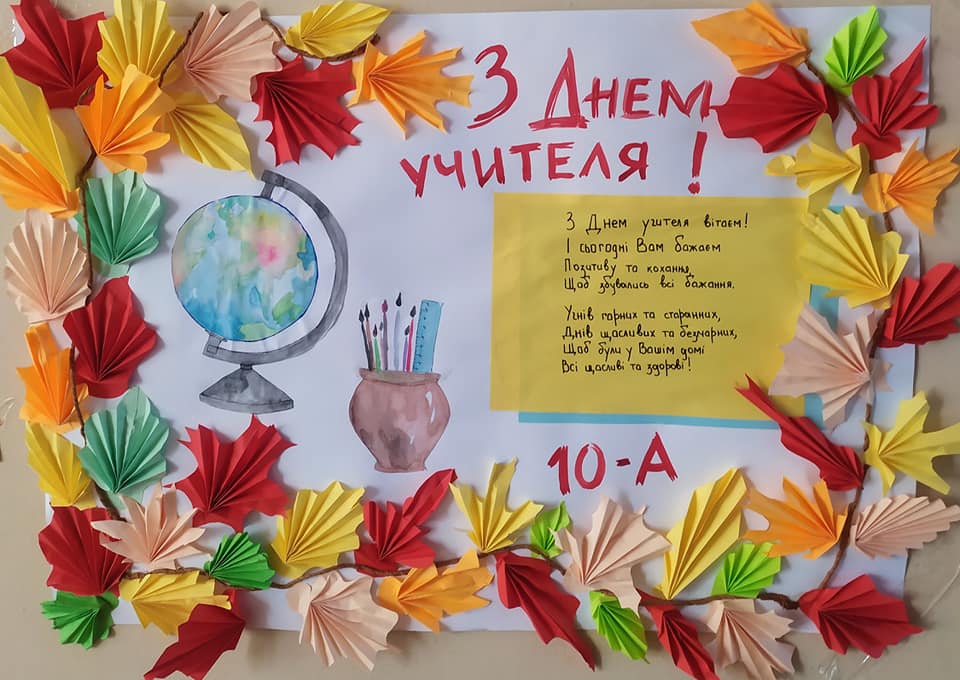 З Днем
учителя!
З Днем учителя вітаєм!
І сьогодні Вам бажаєм
Позитиву та кохання,
Щоб збувались всі бажання.
Учнів гарних та старанних,
Днів щасливих та безхмарних,
Щоб були у Вашім домі
Всі щасливі та здорові!
10-А